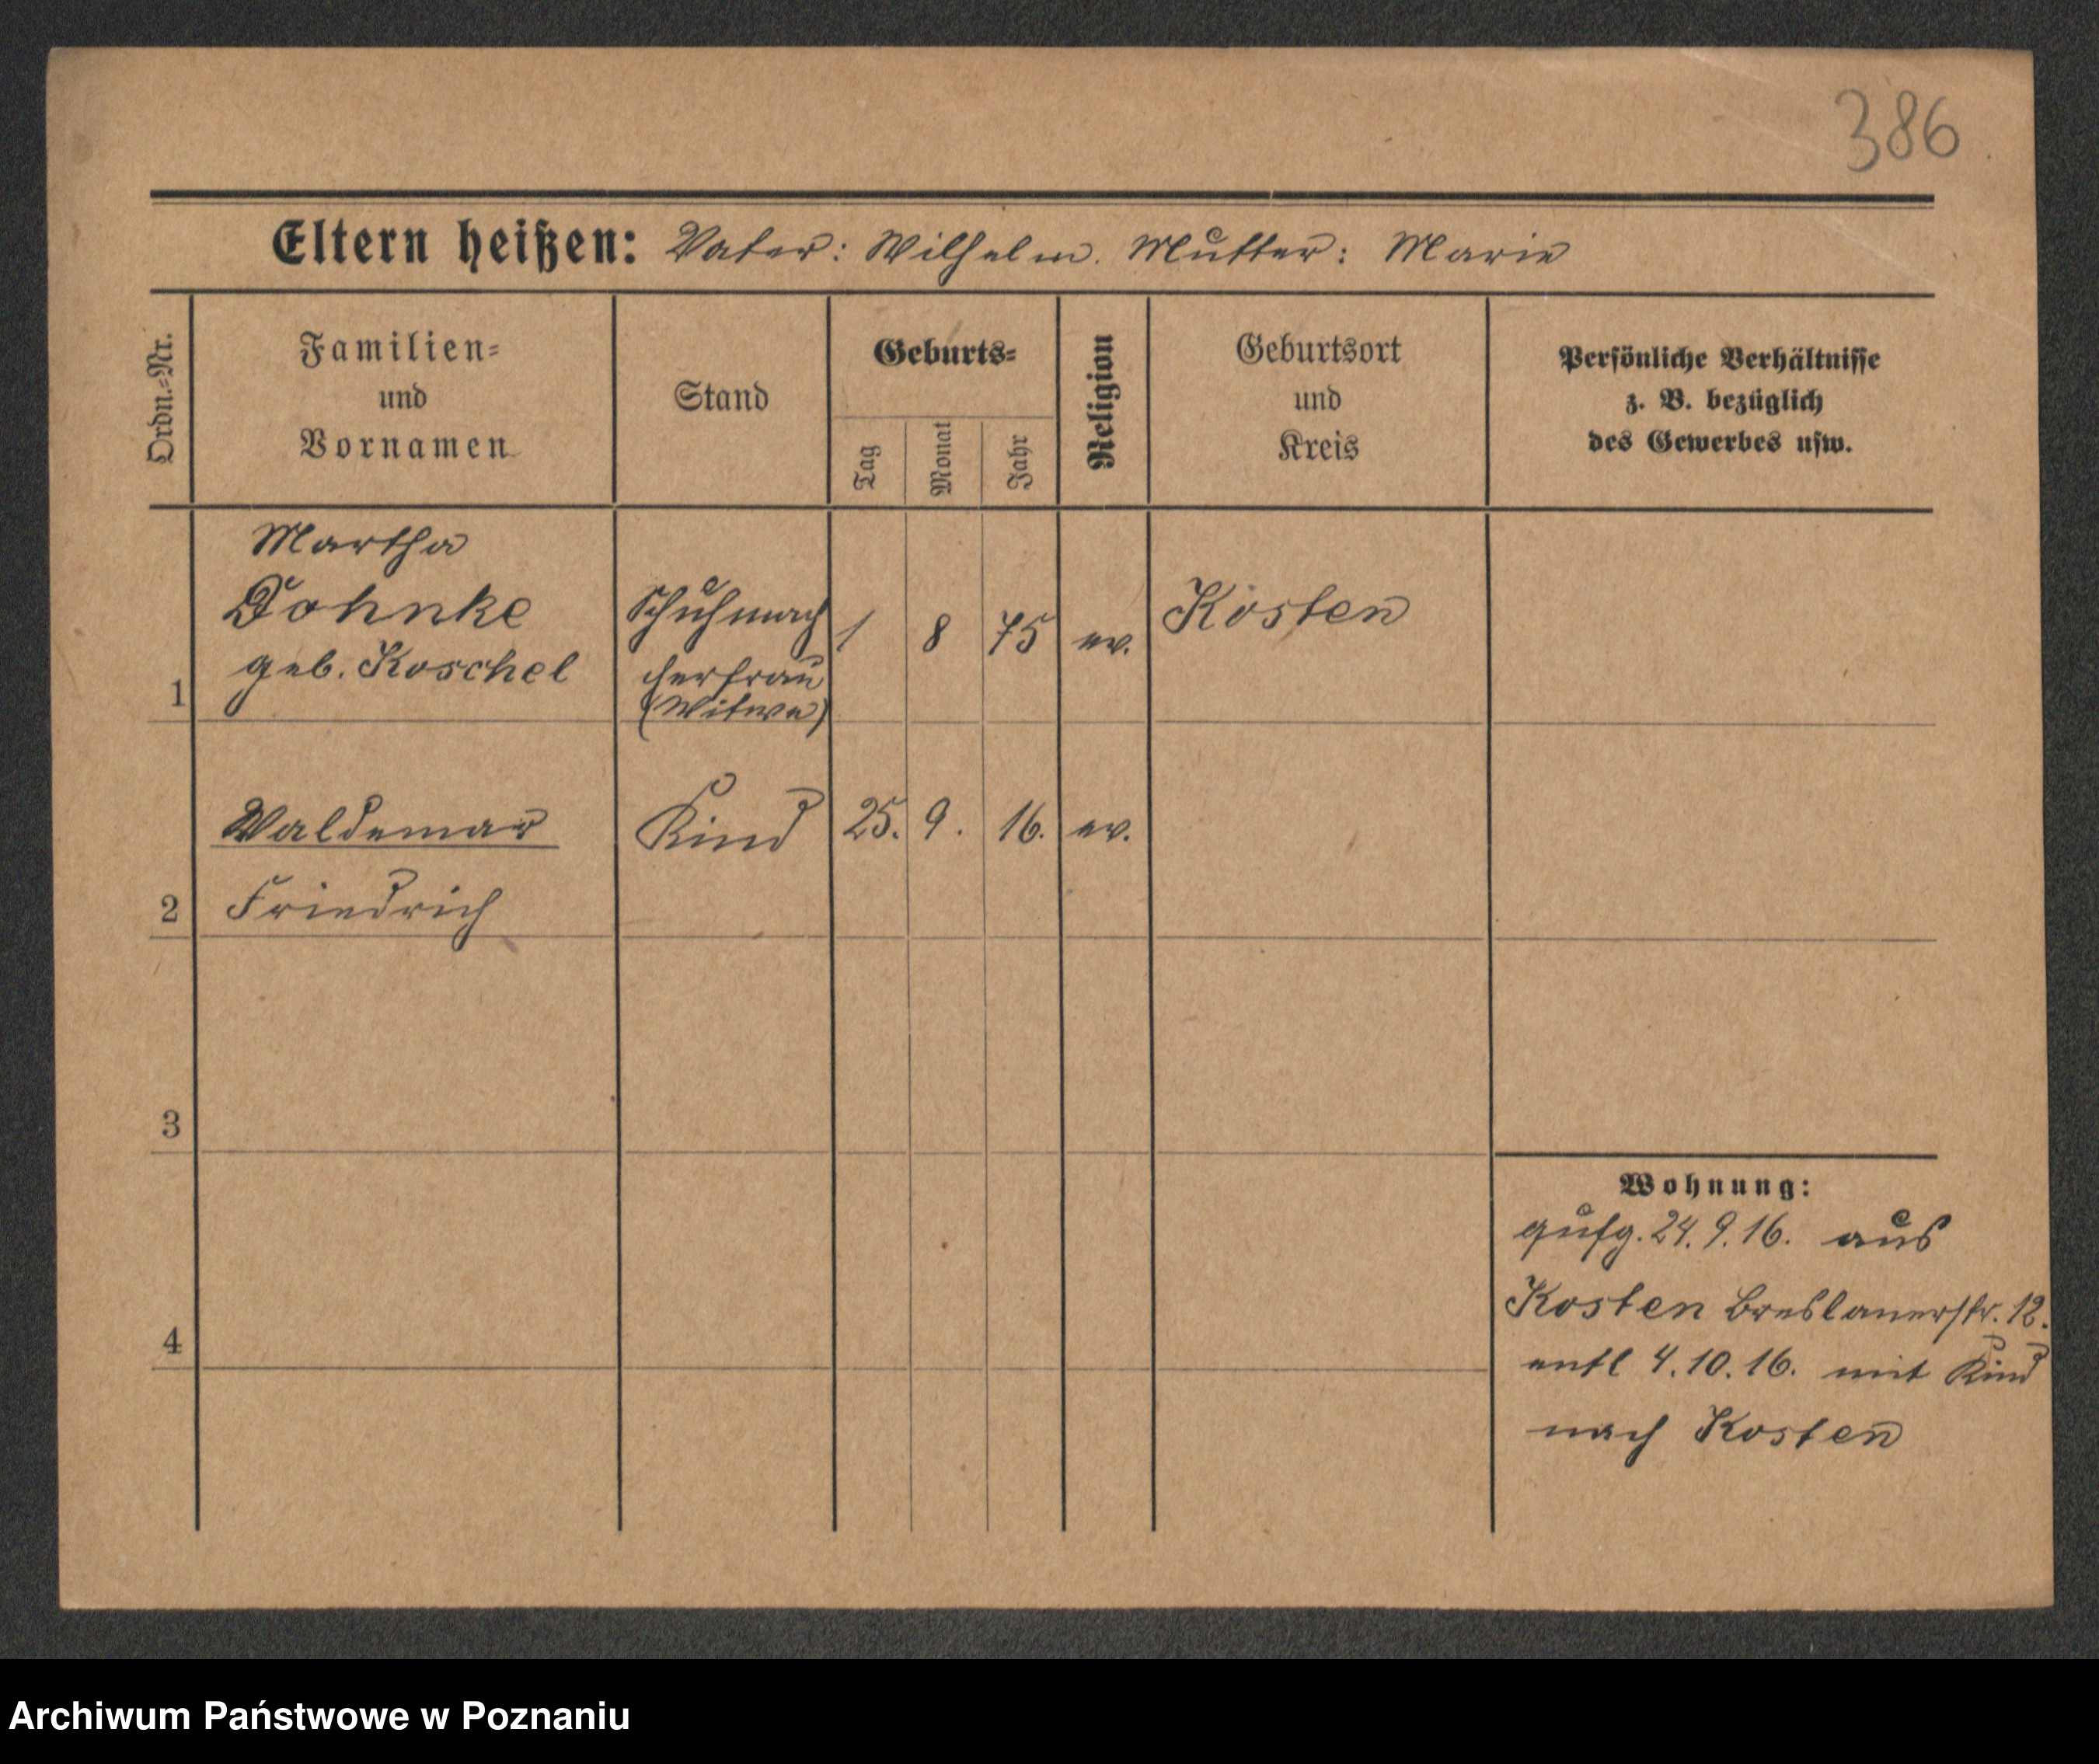 386
Eltern heißen: Vater: Wilhelm. Mutter: Marie
Ordn.-Nr.
Familien-
und
Vornamen
Stand
Geburts-
Tag
Monat
Jahr
Religion
Geburtsort
und
Kreis
Persönliche Verhältnisse
z. B. bezüglich
des Gewerbes usw.
Martha
Dohnke
geb. Koschel
Schuhmach
herfrau
(Witwe)
1 8 75 ev. Kosten
1
Waldemar Kind 25. 9. 16. ev.
2 Friedrich
3
4
Wohnung:
zufg. 24.9.16. aus
Kosten Breslauerstr. 12.
entl 4.10.16. mit Kind
nach Kosten
Archiwum Państwowe w Poznaniu